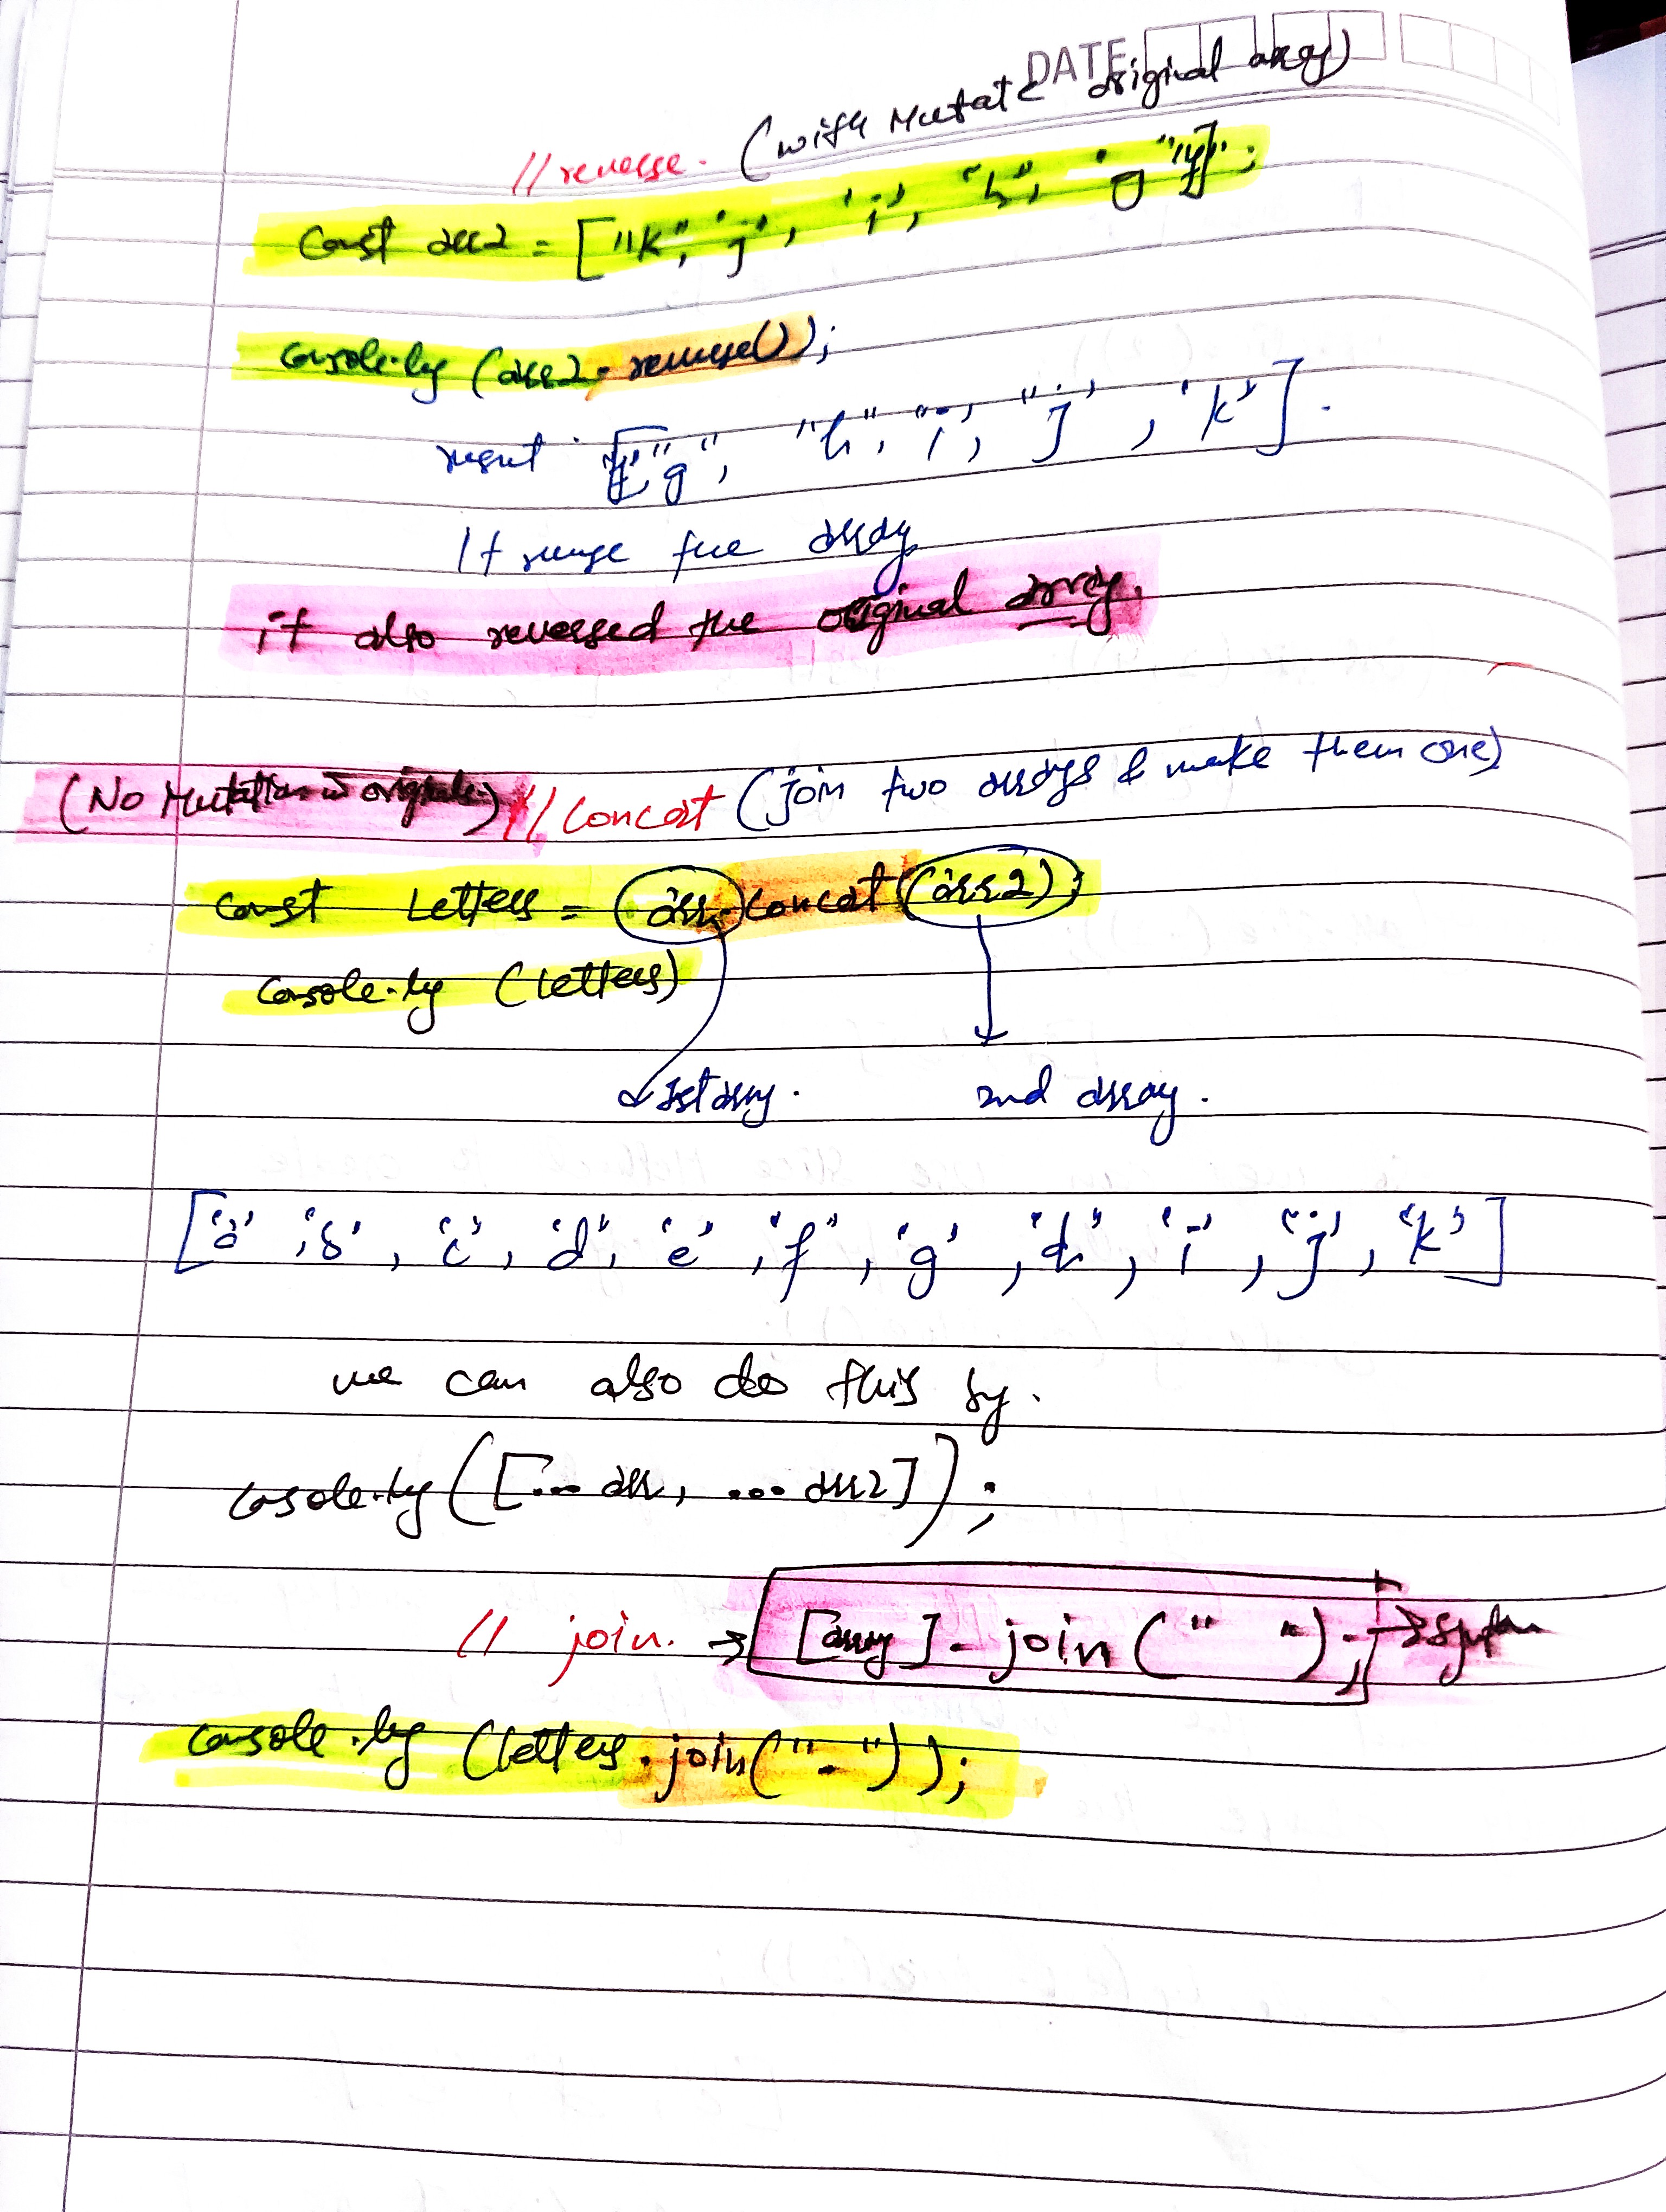 DATE
//reverse. (with Mutate original array)
Const arr2 = ["k", 'j', 'i', "h", 'g' "f"];
console.log (arr2.reverse());
result ["f" "g", "h", "i", "j', 'k'].
It reverse the array
it also reversed the original array.
(No Mutation in originals) // Concat (join two arrays & make them one)
const Letters = arr.concat (arr2);
console.log (letters)
1st array. 2nd array.
['a' ,'b', 'c', 'd', 'e', 'f', 'g', 'h', 'i', 'j', 'k']
we can also do this by.
console.log ([... arr, ... arr2]);
// join. → [array].join(" "); → Syntax
console.log (letters.join("-"));